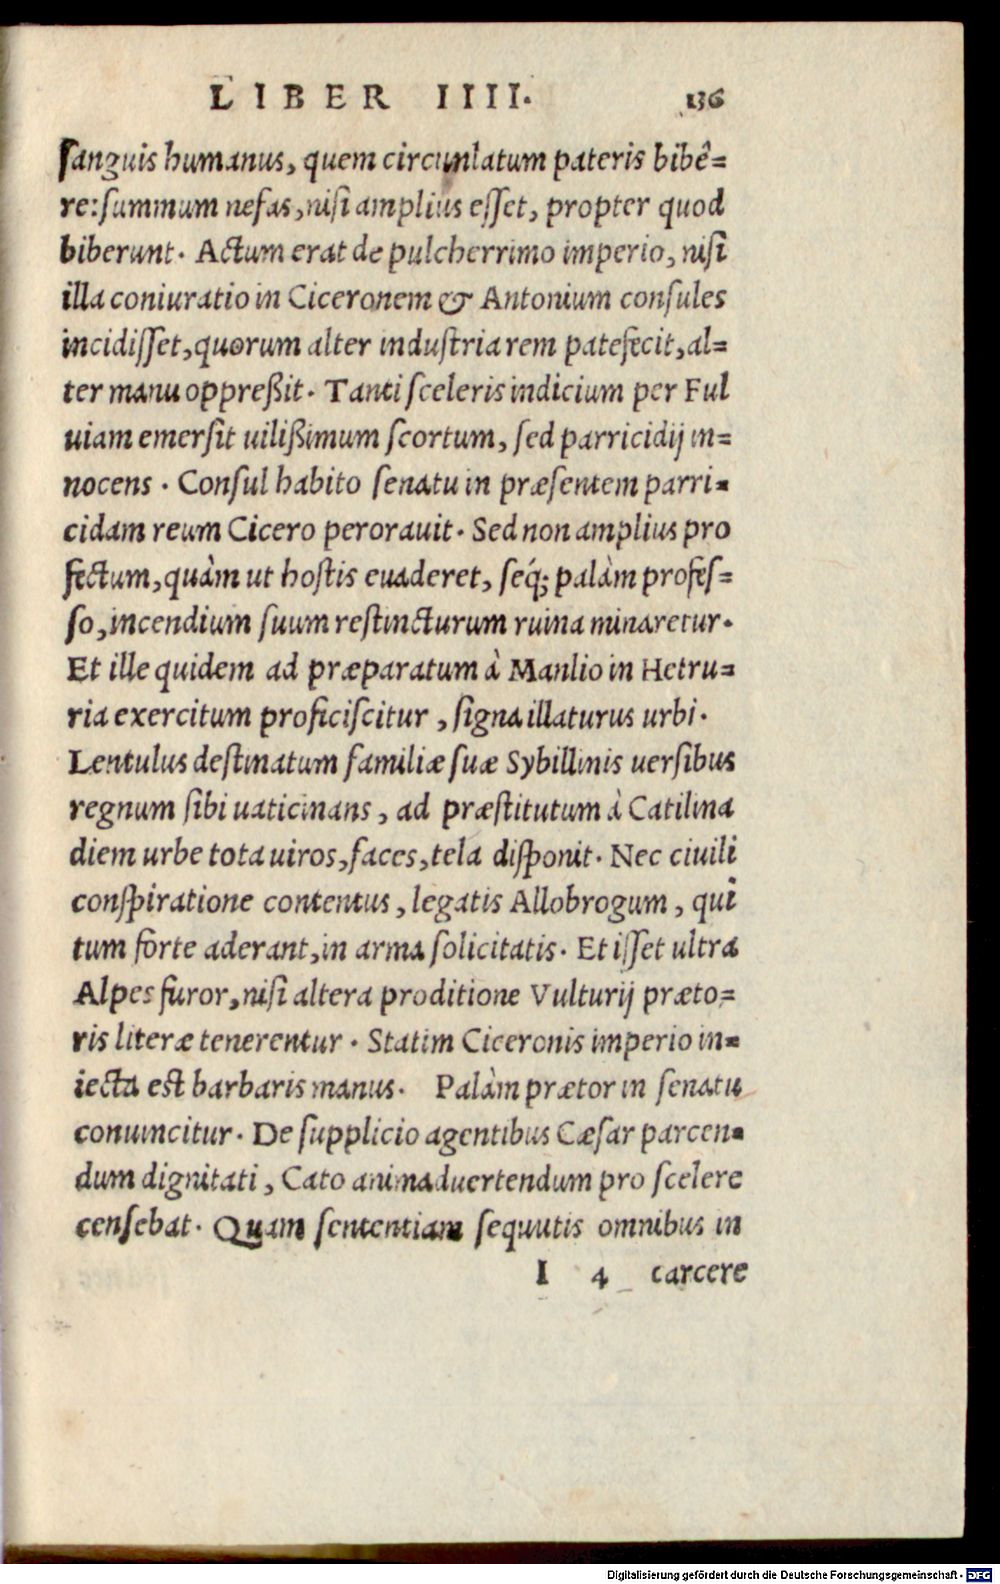 LIBER IIII. 136
sanguis humanus, quem circunlatum pateris bibê=
re: summum nefas, nisi amplius esset, propter quod
biberunt. Actum erat de pulcherrimo imperio, nisi
illa coniuratio in Ciceronem & Antonium consules
incidisset, quorum alter industria rem patefecit, al=
ter manu oppreßit. Tanti sceleris indicium per Ful
uiam emersit uilißimum scortum, sed parricidij in=
nocens. Consul habito senatu in præsentem parri=
cidam reum Cicero perorauit. Sed non amplius pro
fectum, quàm ut hostis euaderet, seq́; palàm profes=
so, incendium suum restincturum ruina minaretur.
Et ille quidem ad præparatum à Manlio in Hetru=
ria exercitum proficiscitur, signa illaturus urbi.
Lentulus destinatum familiæ suæ Sybillinis uersibus
regnum sibi uaticinans, ad præstitutum à Catilina
diem urbe tota uiros, faces, tela disponit. Nec ciuili
conspiratione contentus, legatis Allobrogum, qui
tum forte aderant, in arma solicitatis. Et isset ultra
Alpes furor, nisi altera proditione Vulturij præto=
ris literæ tenerentur. Statim Ciceronis imperio in=
iecta est barbaris manus. Palàm prætor in senatu
conuincitur. De supplicio agentibus Cæsar parcen=
dum dignitati, Cato animaduertendum pro scelere
censebat. Quam sententiam sequutis omnibus in
I 4 carcere
Digitalisierung gefördert durch die Deutsche Forschungsgemeinschaft - DFG